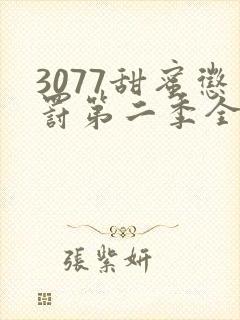 3077甜蜜懲
罸第二季全
張紫妍